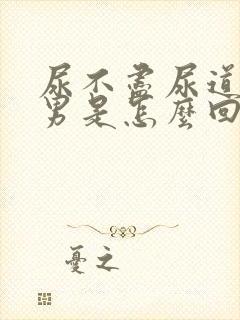 尿不盡尿道
男是怎麼回
憂之